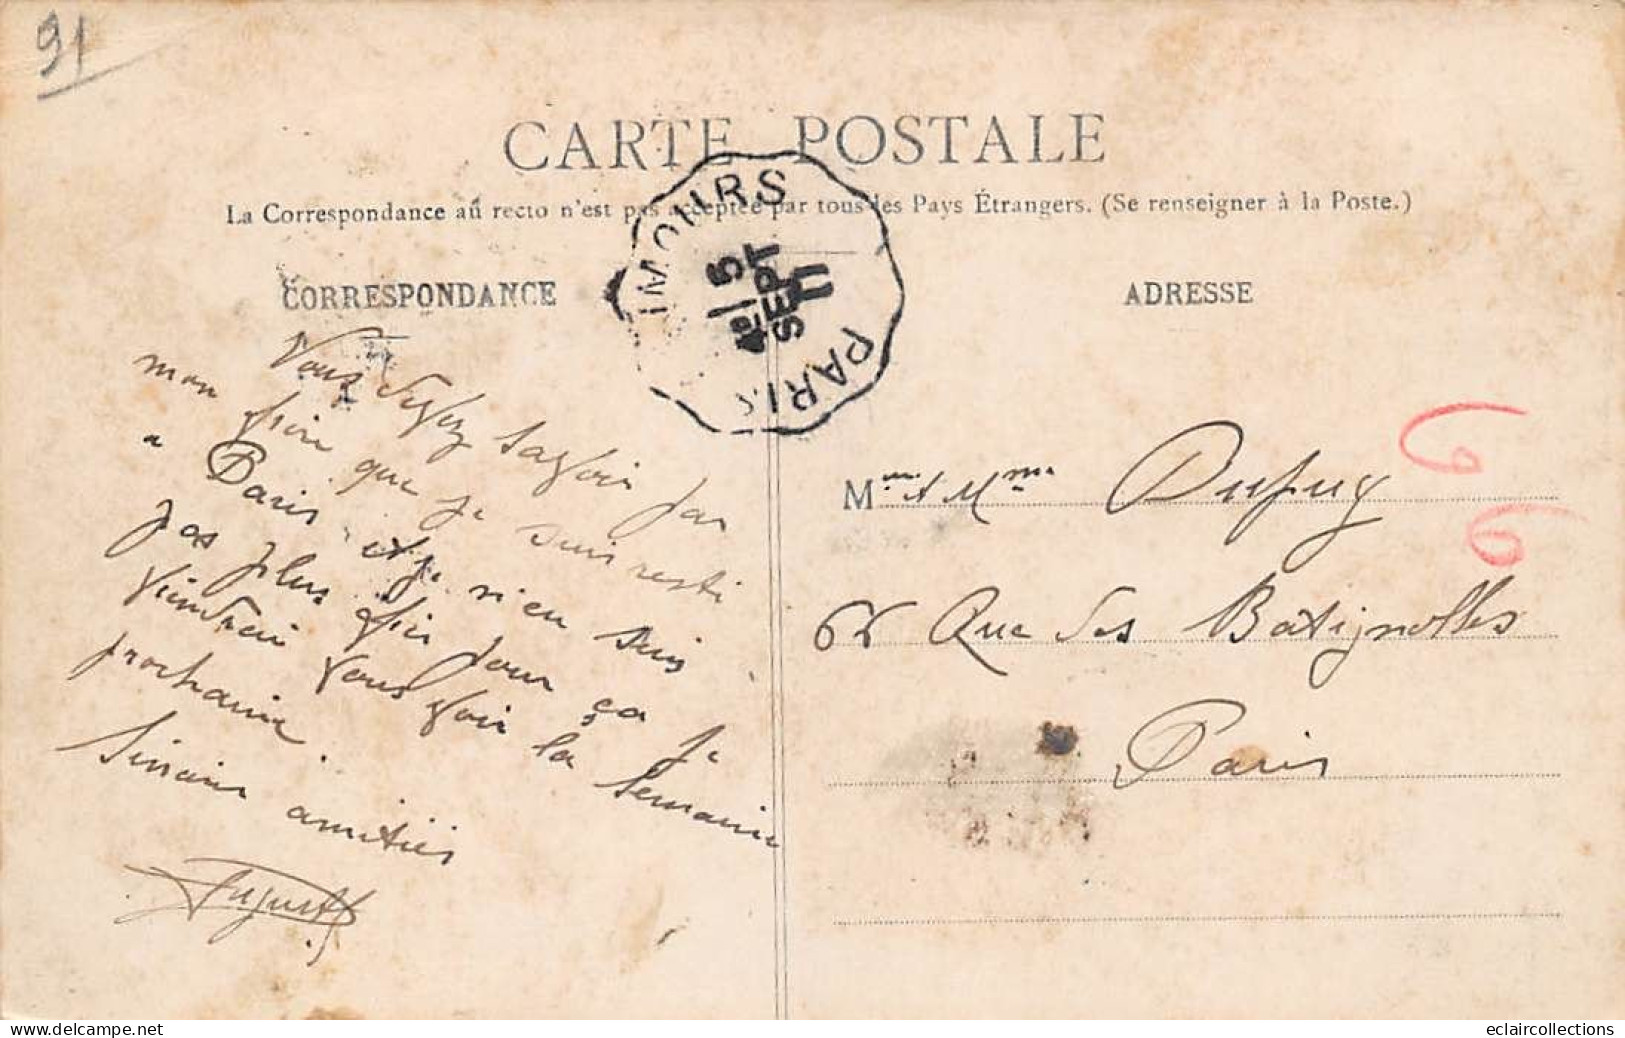 91
CARTE POSTALE
La Correspondance au recto n'est pas acceptée par tous les Pays Étrangers. (Se renseigner à la Poste.)
CORRESPONDANCE
ADRESSE
LIMOURS
4E 5
SEPT
11
PARIS
Vous devez savoir par
mon frère que je suis resté
a Paris et je n'en suis
pas plus fier pour ça je
viendrai vous voir la semaine
prochaine.
Sincères amitiés
August
M. et Mme Dupuy
66 Rue des Batignolles
Paris
eclaircollections